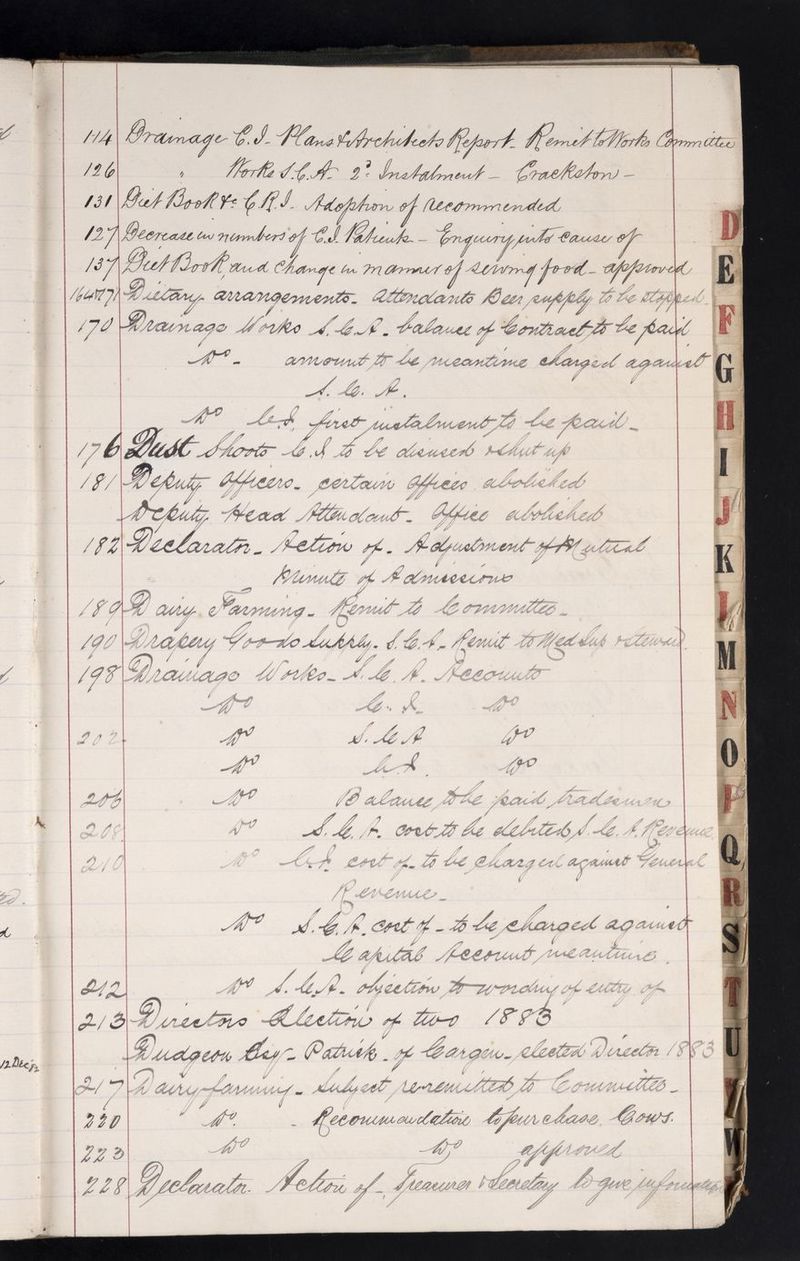 114 Drainage C.I. Plans & Architects Report. Remit to Works Committee
126 " Works S.C.A. 2d. Instalment - Crackston -
131 Diet Book &c C.R.I. Adoption of recommended
127 Decrease in numbers of C.I. Patients - Enquiry into cause of
137 Diet Book, and change in manner of serving food - approved
164 & 171 Dietary arrangements - Attendants Beer, supply to be stopped.
170 Drainage Works S.C.A. balance of Contract, to be paid
Do - amount to be meantime charged against
S.C.A.
Do C.I. first instalment, to be paid -
176 Dust Shoots C.I. to be disused & shut up
181 Deputy Officers - certain Offices abolished
Deputy Head Attendant - Office abolished
182 Declarator - Action of - Adjustment of Mutual
Minute of Admissions
189 Dairy Farming - Remit to Committee -
190 Drapery Goods Supply - S.C.A. - Remit to Med Sup & Steward.
198 Drainage Works - S.C.A. Accounts
Do C.I. Do
202 Do S.C.A Do
Do C.I. Do
206 Do Balance, to be paid, tradesmen
208 Do S.C.A. cost, to be debited, S.C.A. Revenue
210 Do C.I. cost of - to be charged against General
Revenue -
Do S.C.A. cost of - to be charged against
Capital Account meantime.
212 Do S.C.A. - objection to wording of entry of
213 Directors Election of two 1883
Dudgeon Esq - Patrick - of Cargen - elected Director 1883
217 Dairy farming - Subject re-remitted to Committee -
220 Do. - Recommendation to purchase Cows.
223 Do Do approved
228 Declarator. Action of - Treasurer & Secretary to give information
D
E
F
G
H
I
J
K
M
N
O
P
Q
R
S
T
U
W
12 Dec